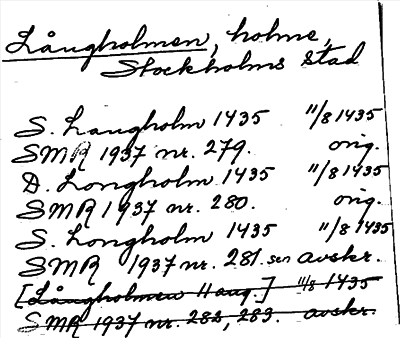 Långholmen, holme,
Stockholms stad
S. Laugholm 1435 11/8 1435
SMR 1937 nr. 279. orig.
D. Longholm 1435 11/8 1435
SMR 1937 nr. 280. orig.
S. Longholm 1435 11/8 1435
SMR 1937 nr. 281. sen avskr.
[Långholmen 11 aug.] 11/8 1435
SMR 1937 nr. 282, 283. avskr.